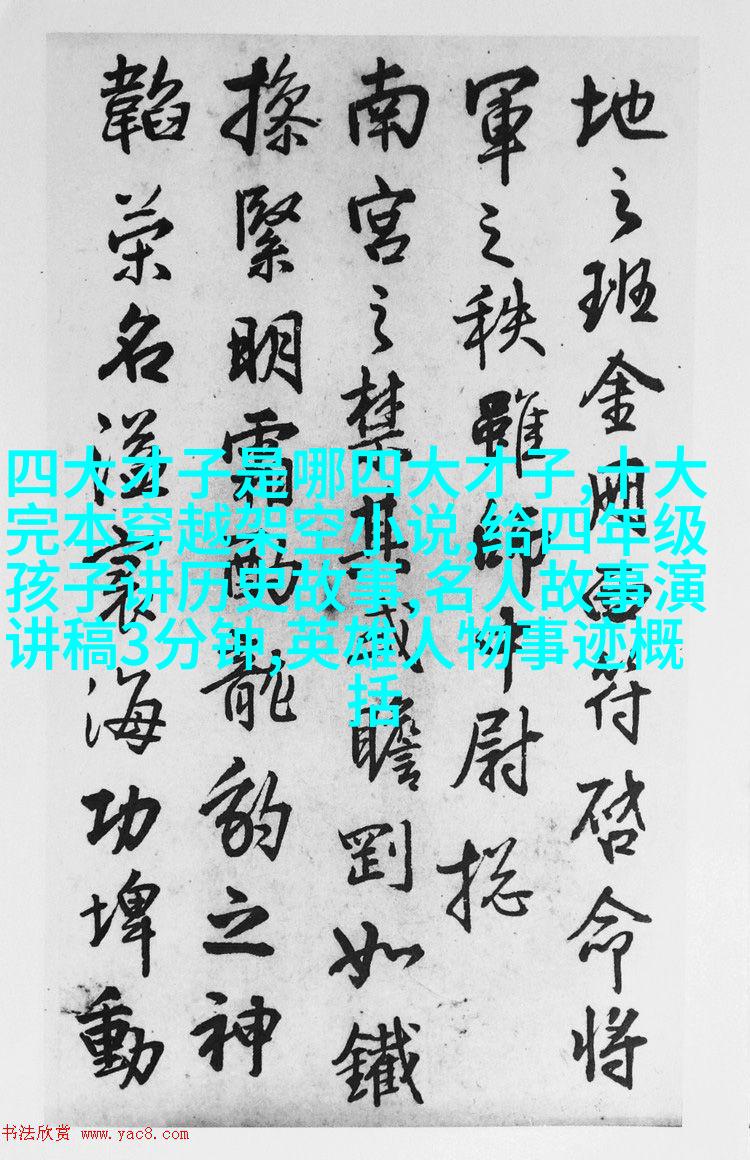 地之班金网西符啓命將
軍之秩雖師中尉捴
南宮之禁其威瞻罰如鐵
操緊明霜酌龍豹之神
韜荣名溢寰海功埤動
四大才子是哪四大才子,十大
完本穿越架空小说,给四年级
孩子讲历史故事,名人故事演
讲稿3分钟,英雄人物事迹概
括
书法欣赏 www.yac8.com